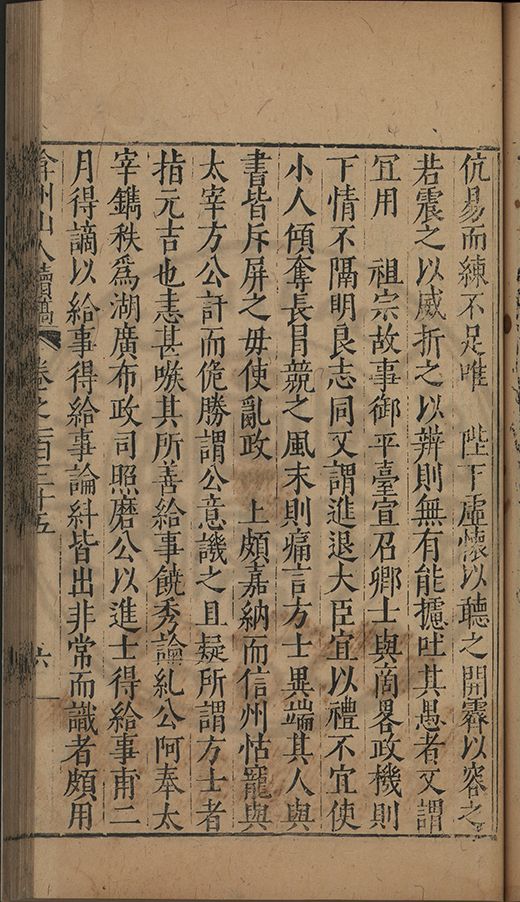 伉易而練不足唯　陛下虛懷以聽之開霽以容之
若震之以威折之以辨則無有能攄吐其愚者又謂
宜用　祖宗故事御平臺宣召卿士與商畧政機則
下情不隔明良志同又謂進退大臣宜以禮不宜使
小人傾奪長冐競之風末則痛言方士異端其人與
書皆斥屏之毋使亂政　上頗嘉納而信州怙寵與
太宰方公計而佹勝謂公意譏之且疑所謂方士者
指元吉也恚甚嗾其所善給事饒秀論糺公阿奉太
宰鐫秩爲湖廣布政司照磨公以進士得給事甫二
月得謫以給事得給事論糾皆出非常而識者頗用
弇州山人續稿　卷之一百三十五　六